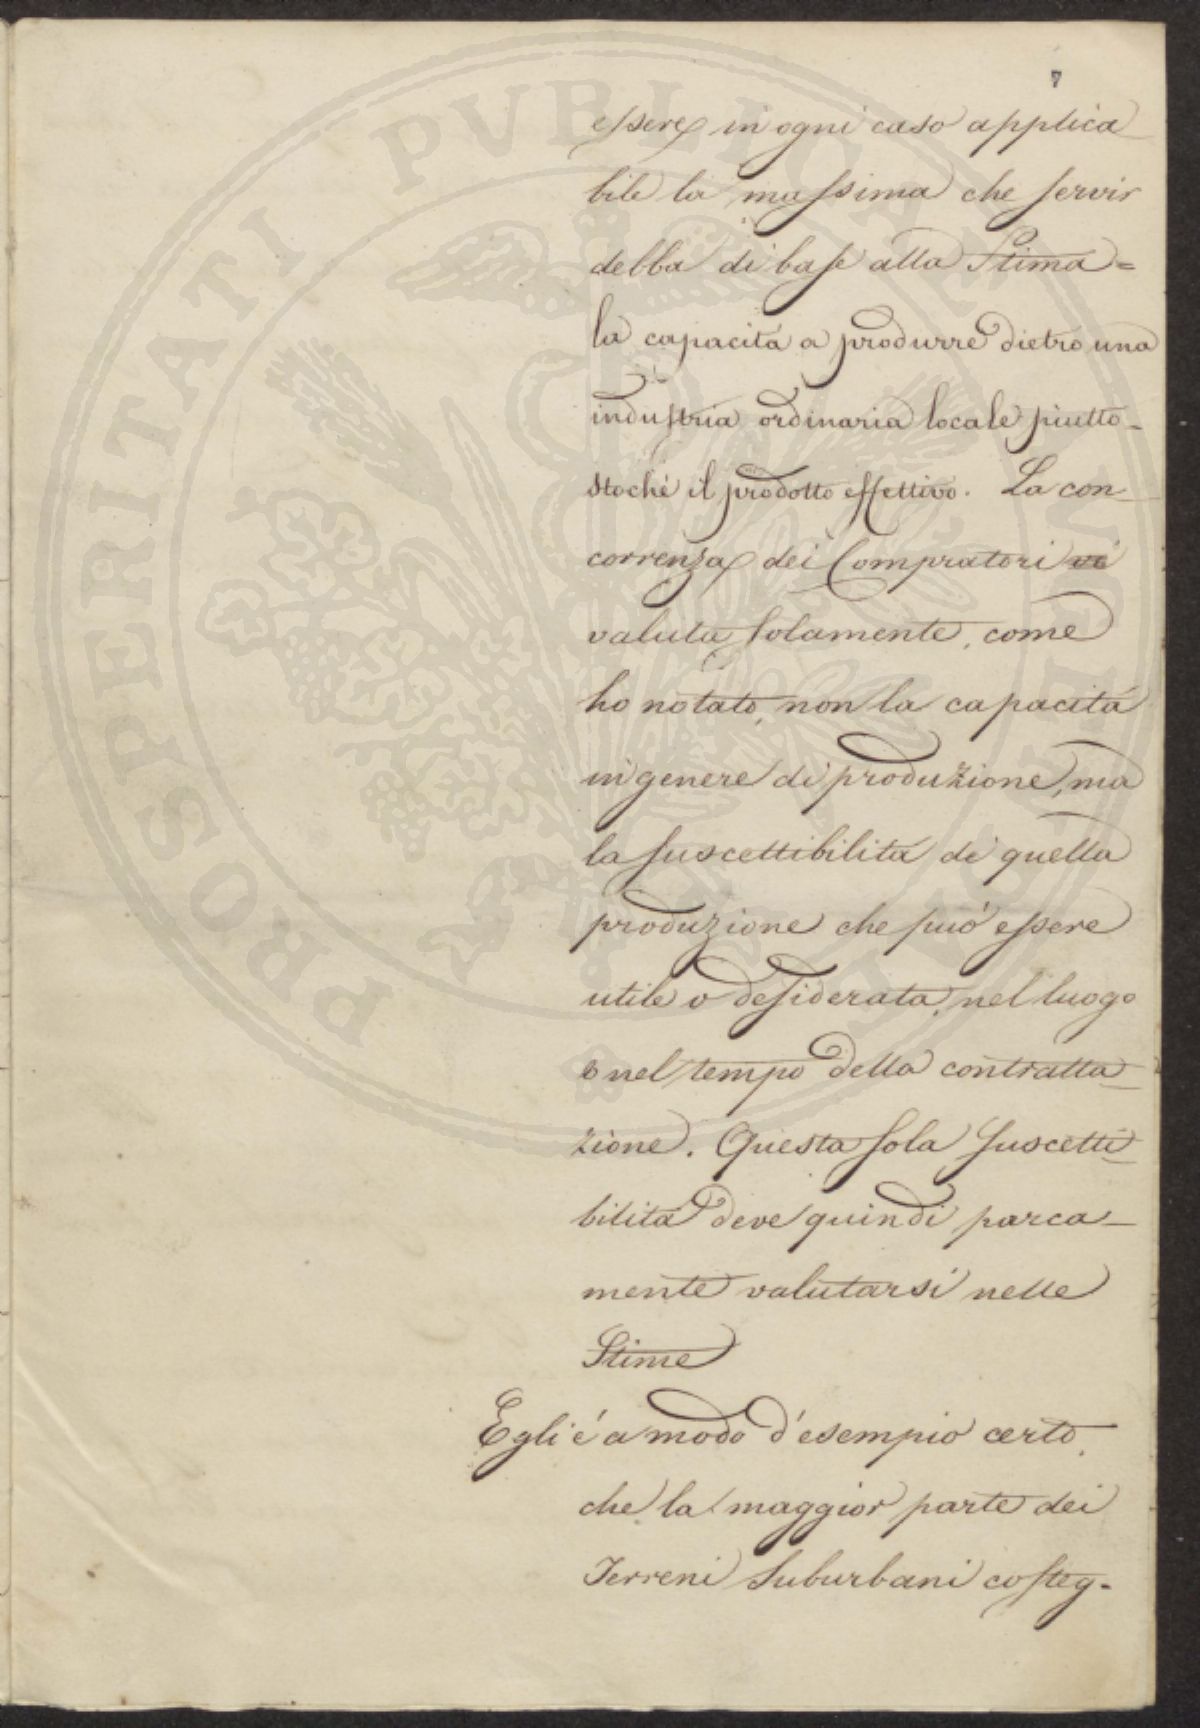 7
essere in ogni caso applica
bile la massima che servir
debba di base alla Stima=
la capacitá a produrre dietro una
industria ordinaria locale piutto-
stoché il prodotto effettivo. La con-
correnza dei Compratori
valuta solamente, come
ho notato, non la capacitá
in genere di produzione, ma
la suscettibilitá di quella
produzione che puó essere
utile o desiderata, nel luogo
e nel tempo della contratta-
zione. Questa sola suscetti-
bilitá deve quindi parca-
mente valutarsi nelle
Stime
Egli é a modo d'esempio certo,
che la maggior parte dei
Terreni Suburbani costeg-
PROSPERITATI PVBLICAE